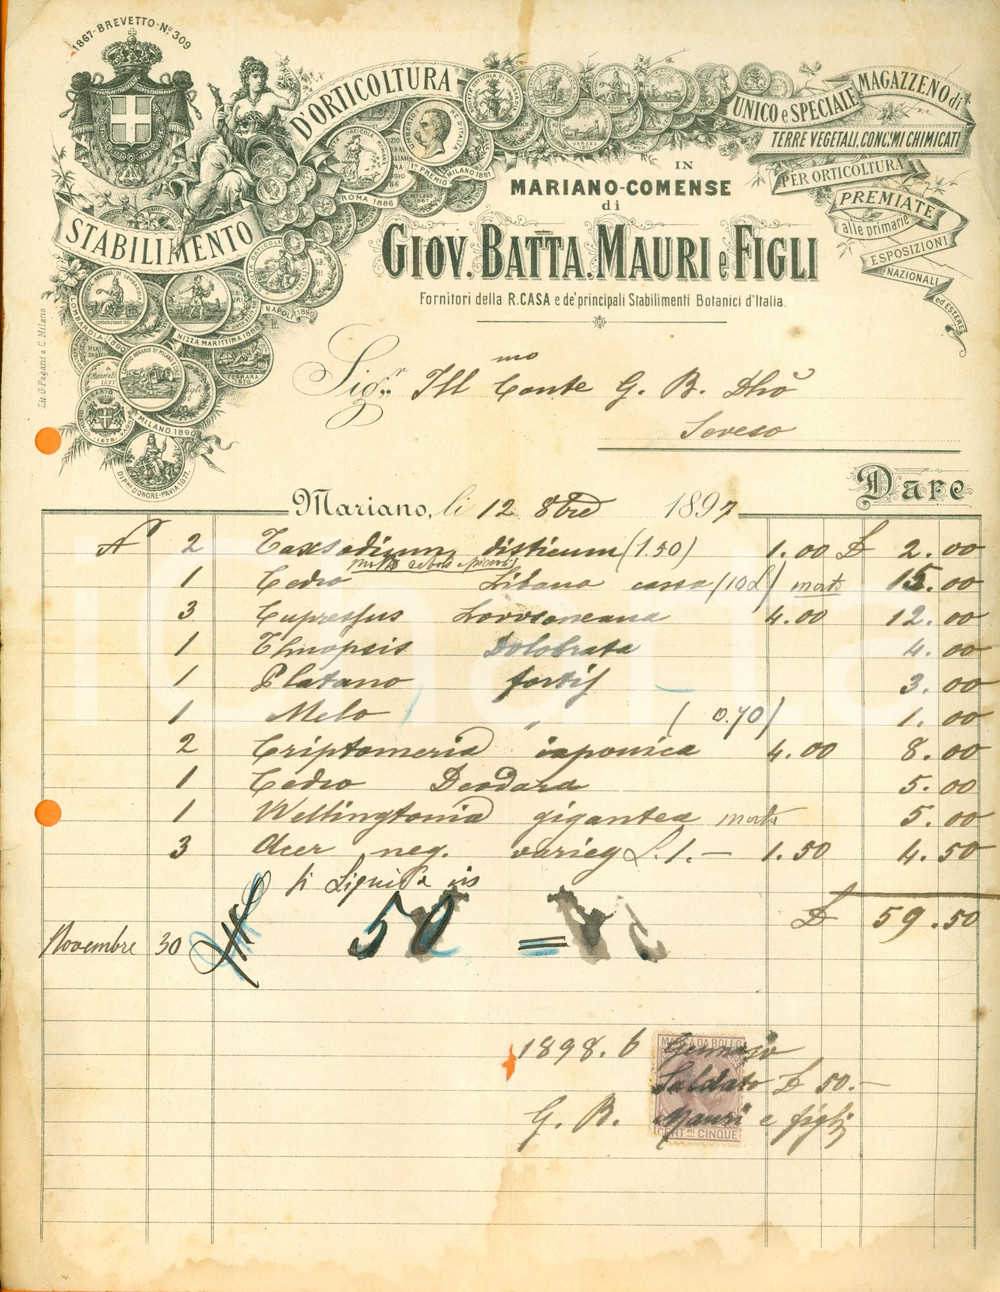 1867-BREVETTO-Nº 309
STABILIMENTO
D'ORTICOLTURA
UNICO e SPECIALE
MAGAZZENO di
TERRE VEGETALI, CONC.MI CHIMICATI
PER ORTICOLTURA
PREMIATE
alle primarie
ESPOSIZIONI
NAZIONALI
ed ESTERE
IN
MARIANO-COMENSE
di
GIOV. BATTA. MAURI e FIGLI
Fornitori della R. CASA e de' principali Stabilimenti Botanici d'Italia.
ROMA 1886
1º PREMIO MILANO 1881
UMBERTO I RE D'ITALIA
LOMBARDIA 1890
NIZZA MARITTIMA 1885
NAPOLI 1890
FERRARA 1870
MILANO 1890
DIP.MI D'ONORE-PAVIA 1877
Lit. G. Pagani e C. Milano
Sigr. Ill mo Conte G. B. Dho
Seveso
Dare
Mariano, li 12 8bre 1897
Nº 2 Taxsodium disticum (1.50) 1.00 £ 2.00
1 Cedro Libano cassa (10£) morto 15.00
3 Cupressus Lovsoneana 4.00 12.00
1 Thuopsis Dolobrata 4.00
1 Platano fortis 3.00
1 Melo " (0.70) 1.00
2 Criptomeria iaponica 4.00 8.00
1 Cedro Deodara 5.00
1 Wellingtonia gigantea morta 5.00
3 Acer neg. varieg L. 1.— 1.50 4.50
Si Liquida in
£ 59.50
Novembre 30 50 =
1898. 6 Gennaio
MARCA DA BOLLO
Saldato £ 50.—
G. B. Mauri e figli
CENT.MI CINQUE